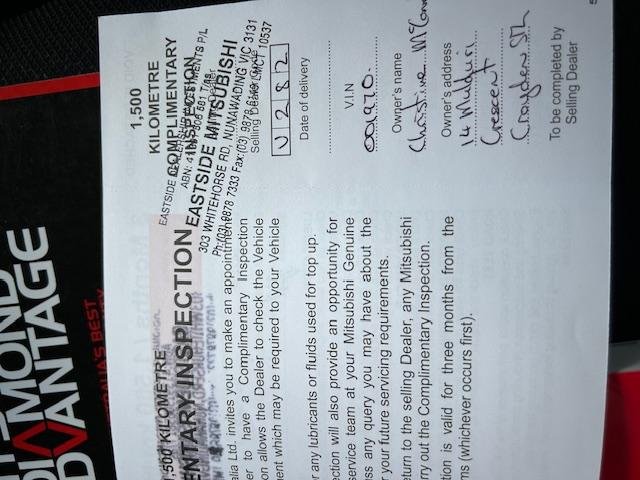 DIAMOND
ADVANTAGE
AUSTRALIA'S BEST
1,500 KILOMETRE
ENTARY INSPECTION
alia Ltd. invites you to make an appointment
er to have a Complimentary Inspection
on allows the Dealer to check the Vehicle
ent which may be required to your Vehicle
r any lubricants or fluids used for top up.
ection will also provide an opportunity for
service team at your Mitsubishi Genuine
ss any query you may have about the
r your future servicing requirements.
eturn to the selling Dealer, any Mitsubishi
rry out the Complimentary Inspection.
tion is valid for three months from the
ms (whichever occurs first).
1,500
KILOMETRE
COMPLIMENTARY
INSPECTION
EASTSIDE
P/L
ABN:
EASTSIDE MITSUBISHI
303 WHITEHORSE RD, NUNAWADING VIC 3131
Ph:(03) 9878 7333 Fax:(03) 9878
LMCT 10537
Selling Dealer
U 2 8 2
Date of delivery
V.I.N
001970.
Owner's name
Christine
Owner's address
14
Crescent
Croydon Sth
To be completed by
Selling Dealer
5